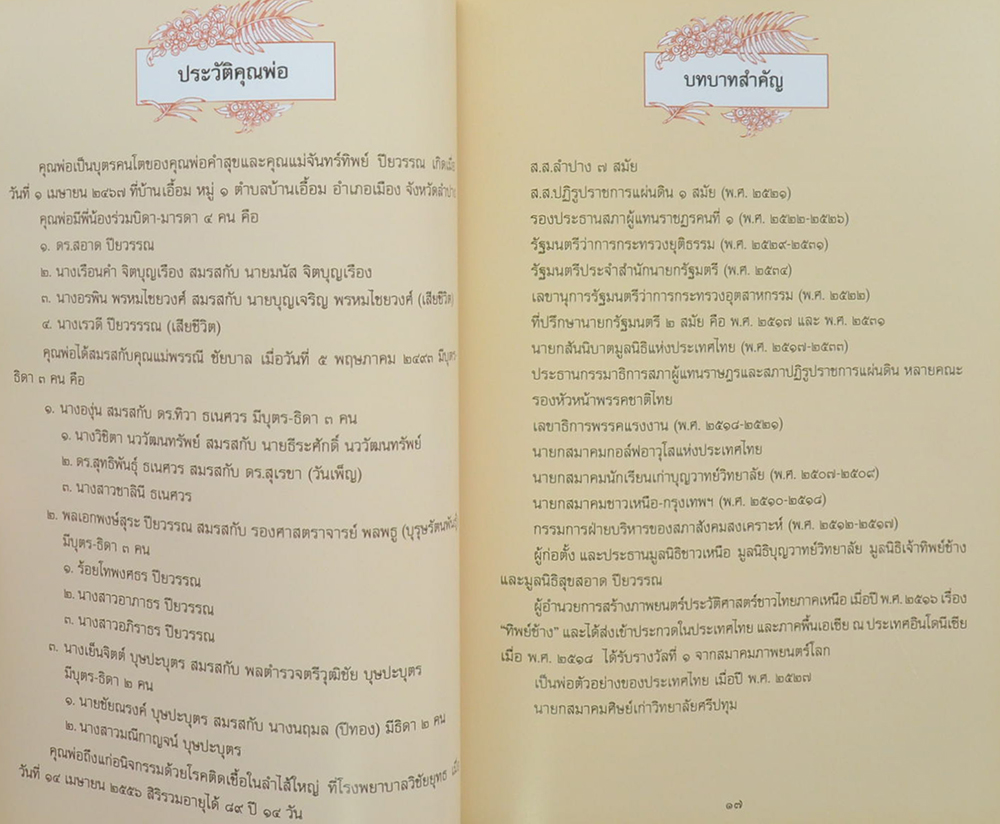 ประวัติคุณพ่อ
คุณพ่อเป็นบุตรคนโตของคุณพ่อคำสุขและคุณแม่จันทร์ทิพย์ ปิยวรรณ เกิดเมื่อ
วันที่ ๑ เมษายน ๒๔๖๗ ที่บ้านเอื้อม หมู่ ๑ ตำบลบ้านเอื้อม อำเภอเมือง จังหวัดลำปาง
คุณพ่อมีพี่น้องร่วมบิดา-มารดา ๔ คน คือ
๑. ดร.สอาด ปิยวรรณ
๒. นางเรือนคำ จิตบุญเรือง สมรสกับ นายมนัส จิตบุญเรือง
๓. นางอรพิน พรหมไชยวงศ์ สมรสกับ นายบุญเจริญ พรหมไชยวงศ์ (เสียชีวิต)
๔. นางเรวดี ปิยวรรรณ (เสียชีวิต)
คุณพ่อได้สมรสกับคุณแม่พรรณี ชัยบาล เมื่อวันที่ ๕ พฤษภาคม ๒๔๙๓ มีบุตร-
ธิดา ๓ คน คือ
๑. นางองุ่น สมรสกับ ดร.ทิวา ธเนศวร มีบุตร-ธิดา ๓ คน
๑. นางวิชิตา นววัฒนทรัพย์ สมรสกับ นายธีระศักดิ์ นววัฒนทรัพย์
๒. ดร.สุทธิพันธุ์ ธเนศวร สมรสกับ ดร.สุเรขา (วันเพ็ญ)
๓. นางสาวชาลินี ธเนศวร
๒. พลเอกพงษ์สุระ ปิยวรรณ สมรสกับ รองศาสตราจารย์ พลพธู (บุรุษรัตนพันธุ์)
มีบุตร-ธิดา ๓ คน
๑. ร้อยโทพงศธร ปิยวรรณ
๒. นางสาวอาภาธร ปิยวรรณ
๓. นางสาวอภิราธร ปิยวรรณ
๓. นางเย็นจิตต์ บุษปะบุตร สมรสกับ พลตำรวจตรีวุฒิชัย บุษปะบุตร
มีบุตร-ธิดา ๒ คน
๑. นายชัยณรงค์ บุษปะบุตร สมรสกับ นางนฤมล (ปีทอง) มีธิดา ๒ คน
๒. นางสาวมณีกาญจน์ บุษปะบุตร
คุณพ่อถึงแก่อนิจกรรมด้วยโรคติดเชื้อในลำไส้ใหญ่ ที่โรงพยาบาลวิชัยยุทธ เมื่อ
วันที่ ๑๔ เมษายน ๒๕๕๖ สิริรวมอายุได้ ๘๙ ปี ๑๔ วัน
บทบาทสำคัญ
ส.ส.ลำปาง ๗ สมัย
ส.ส.ปฏิรูปราชการแผ่นดิน ๑ สมัย (พ.ศ. ๒๕๒๑)
รองประธานสภาผู้แทนราชฎรคนที่ ๑ (พ.ศ. ๒๕๒๒-๒๕๒๖)
รัฐมนตรีว่าการกระทรวงยุติธรรม (พ.ศ. ๒๕๒๙-๒๕๓๑)
รัฐมนตรีประจำสำนักนายกรัฐมตรี (พ.ศ. ๒๕๓๔)
เลขานุการรัฐมนตรีว่าการกระทรวงอุตสาหกรรม (พ.ศ. ๒๕๒๒)
ที่ปรึกษานายกรัฐมนตรี ๒ สมัย คือ พ.ศ. ๒๕๑๗ และ พ.ศ. ๒๕๓๑
นายกสันนิบาตมูลนิธิแห่งประเทศไทย (พ.ศ. ๒๕๑๗-๒๕๓๓)
ประธานกรรมาธิการสภาผู้แทนราษฎรและสภาปฏิรูปราชการแผ่นดิน หลายคณะ
รองหัวหน้าพรรคชาติไทย
เลขาธิการพรรคแรงงาน (พ.ศ. ๒๕๑๘-๒๕๒๑)
นายกสมาคมกอล์ฟอาวุโสแห่งประเทศไทย
นายกสมาคมนักเรียนเก่าบุญวาทย์วิทยาลัย (พ.ศ. ๒๕๐๗-๒๕๐๙)
นายกสมาคมชาวเหนือ-กรุงเทพฯ (พ.ศ. ๒๕๑๐-๒๕๑๘)
กรรมการฝ่ายบริหารของสภาสังคมสงเคราะห์ (พ.ศ. ๒๕๑๒-๒๕๑๗)
ผู้ก่อตั้ง และประธานมูลนิธิชาวเหนือ มูลนิธิบุญวาทย์วิทยาลัย มูลนิธิเจ้าทิพย์ช้าง
และมูลนิธิสุขสอาด ปิยวรรณ
ผู้อำนวยการสร้างภาพยนตร์ประวัติศาสตร์ชาวไทยภาคเหนือ เมื่อปี พ.ศ. ๒๕๑๖ เรื่อง
“ทิพย์ช้าง” และได้ส่งเข้าประกวดในประเทศไทย และภาคพื้นเอเชีย ณ ประเทศอินโดนีเซีย
เมื่อ พ.ศ. ๒๕๑๘ ได้รับรางวัลที่ ๑ จากสมาคมภาพยนตร์โลก
เป็นพ่อตัวอย่างของประเทศไทย เมื่อปี พ.ศ. ๒๕๒๗
นายกสมาคมศิษย์เก่าวิทยาลัยศรีปทุม
๑๗